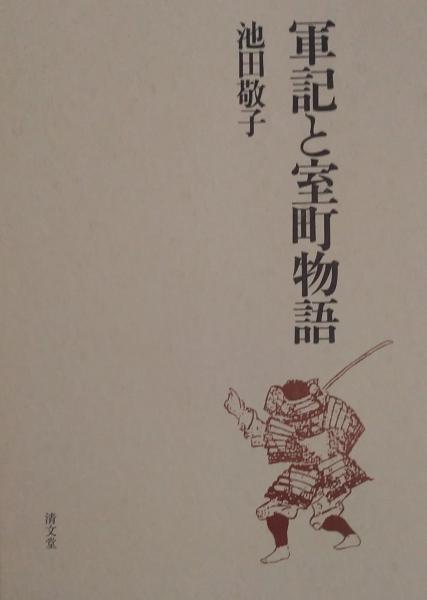 軍記と室町物語
池田敬子
清文堂